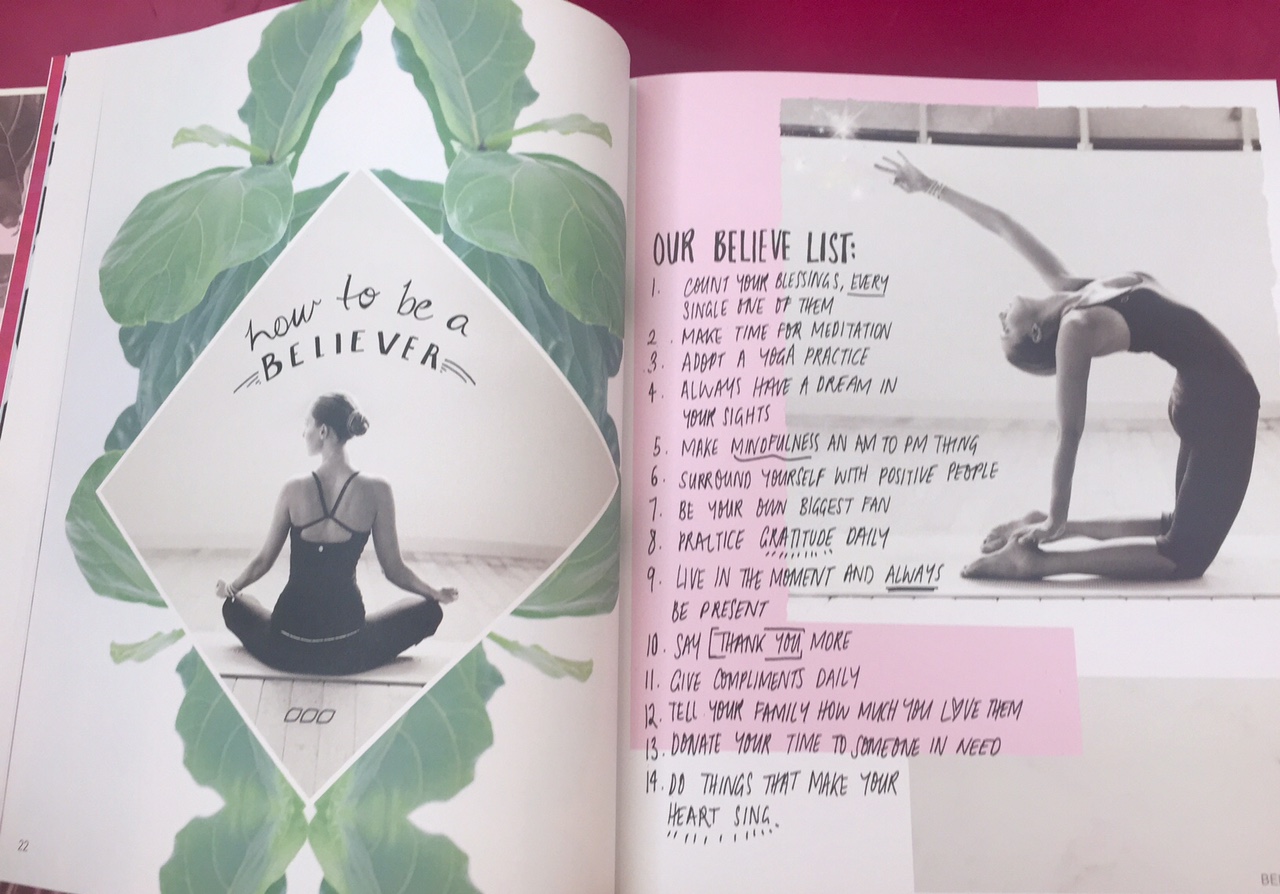 how to be a
BELIEVER
22
OUR BELIEVE LIST:
1. COUNT YOUR BLESSINGS, EVERY
SINGLE ONE OF THEM
2. MAKE TIME FOR MEDITATION
3. ADOPT A YOGA PRACTICE
4. ALWAYS HAVE A DREAM IN
YOUR SIGHTS
5. MAKE MINDFULNESS AN AM TO PM THING
6. SURROUND YOURSELF WITH POSITIVE PEOPLE
7. BE YOUR OWN BIGGEST FAN
8. PRACTICE GRATITUDE DAILY
9. LIVE IN THE MOMENT AND ALWAYS
BE PRESENT
10. SAY [THANK YOU] MORE
11. GIVE COMPLIMENTS DAILY
12. TELL YOUR FAMILY HOW MUCH YOU LOVE THEM
13. DONATE YOUR TIME TO SOMEONE IN NEED
14. DO THINGS THAT MAKE YOUR
HEART SING.